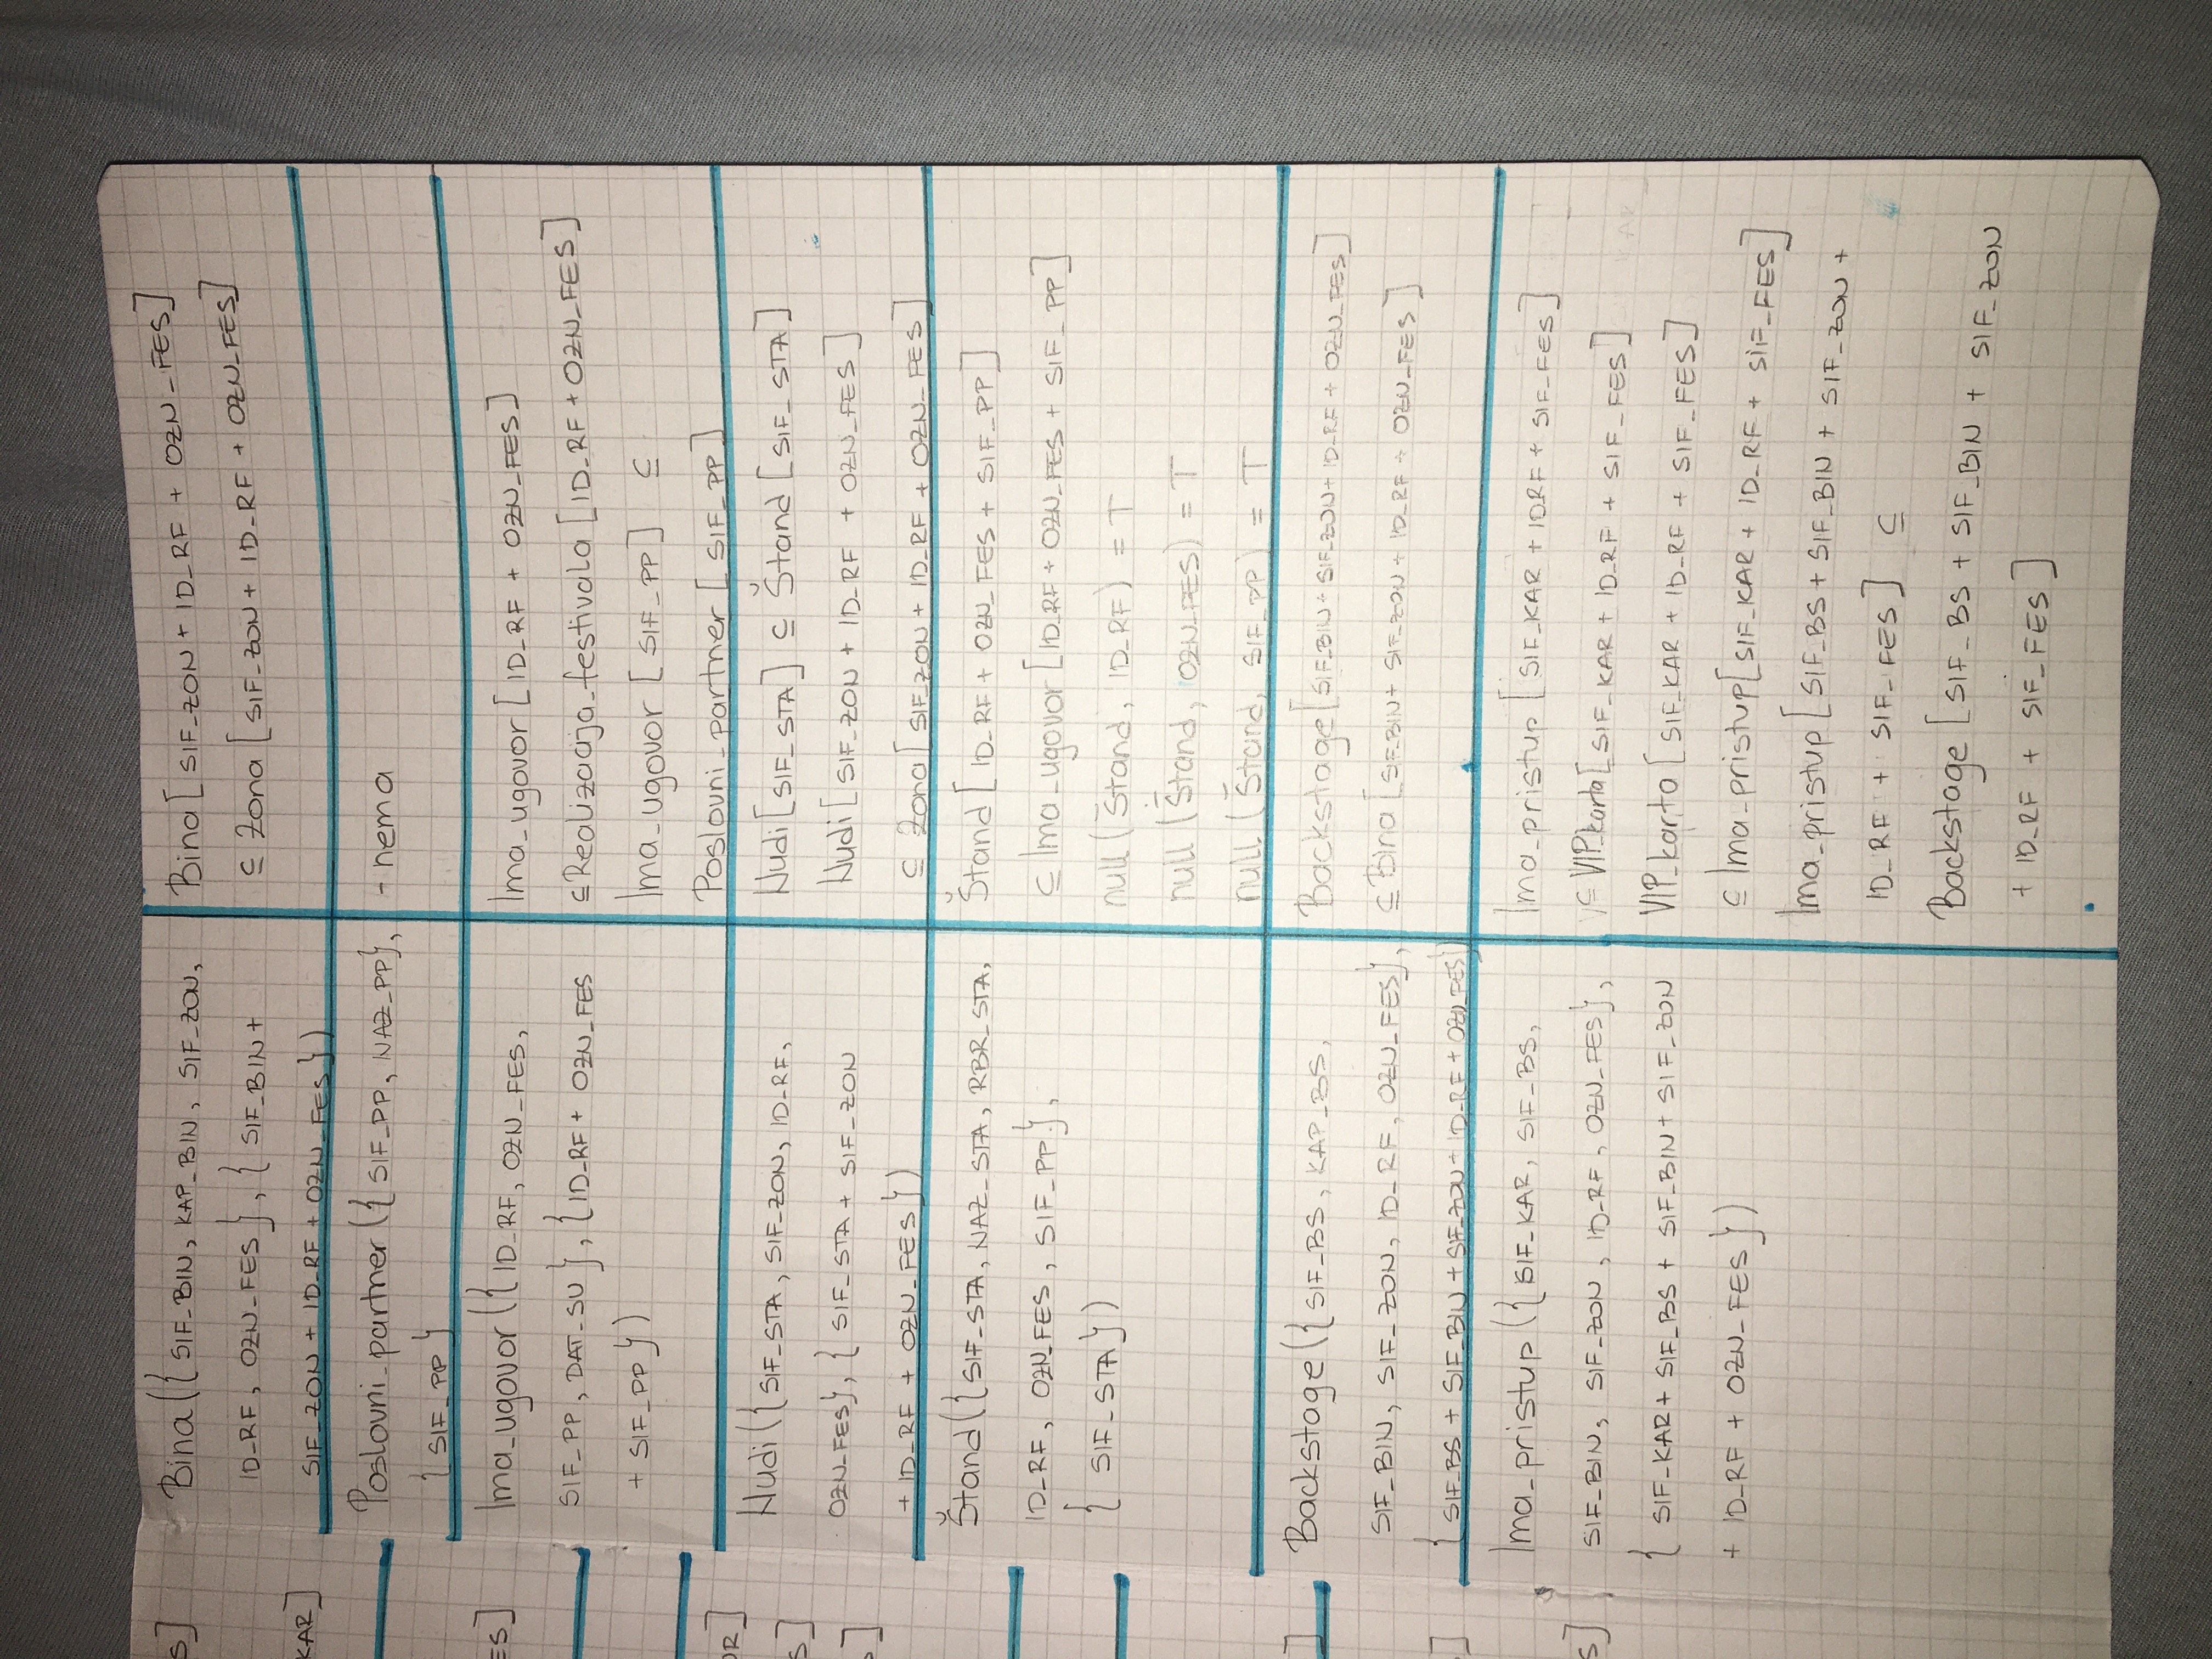 S]
KAR]
ES]
OR]
S]
]
]
]
S]
Bina ({ SIF_BIN, KAP_BIN, SIF_ZON,
ID_RF, OZN_FES }, { SIF_BIN +
SIF_ZON + ID_RF + OZN_FES })
Bina [ SIF_ZON + ID_RF + OZN_FES ]
⊆ Zona [ SIF_ZON + ID_RF + OZN_FES ]
Poslovni_partner ({ SIF_PP, NAZ_PP },
{ SIF_PP }
- nema
Ima_ugovor ({ ID_RF, OZN_FES,
SIF_PP, DAT_SU }, { ID_RF + OZN_FES
+ SIF_PP })
Ima_ugovor [ ID_RF + OZN_FES ]
⊆ Realizacija_festivala [ ID_RF + OZN_FES ]
Ima_ugovor [ SIF_PP ] ⊆
Poslovni_partner [ SIF_PP ]
Nudi ({ SIF_STA, SIF_ZON, ID_RF,
OZN_FES }, { SIF_STA + SIF_ZON
+ ID_RF + OZN_FES })
Nudi [ SIF_STA ] ⊆ Štand [ SIF_STA ]
Nudi [ SIF_ZON + ID_RF + OZN_FES ]
⊆ Zona [ SIF_ZON + ID_RF + OZN_FES ]
Štand ({ SIF_STA, NAZ_STA, RBR_STA,
ID_RF, OZN_FES, SIF_PP },
{ SIF_STA })
Štand [ ID_RF + OZN_FES + SIF_PP ]
⊆ Ima_ugovor [ ID_RF + OZN_FES + SIF_PP ]
null ( Štand, ID_RF ) = T
null ( Štand, OZN_FES ) = T
null ( Štand, SIF_PP ) = T
Backstage ({ SIF_BS, KAP_BS,
SIF_BIN, SIF_ZON, ID_RF, OZN_FES },
{ SIF_BS + SIF_BIN + SIF_ZON + ID_RF + OZN_FES })
Backstage [ SIF_BIN + SIF_ZON + ID_RF + OZN_FES ]
⊆ Bina [ SIF_BIN + SIF_ZON + ID_RF + OZN_FES ]
Ima_pristup ({ SIF_KAR, SIF_BS,
SIF_BIN, SIF_ZON, ID_RF, OZN_FES },
{ SIF_KAR + SIF_BS + SIF_BIN + SIF_ZON
+ ID_RF + OZN_FES })
Ima_pristup [ SIF_KAR + ID_RF + SIF_FES ]
⊆ VIP_karta [ SIF_KAR + ID_RF + SIF_FES ]
VIP_karta [ SIF_KAR + ID_RF + SIF_FES ]
⊆ Ima_pristup [ SIF_KAR + ID_RF + SIF_FES ]
Ima_pristup [ SIF_BS + SIF_BIN + SIF_ZON +
ID_RF + SIF_FES ] ⊆
Backstage [ SIF_BS + SIF_BIN + SIF_ZON
+ ID_RF + SIF_FES ]